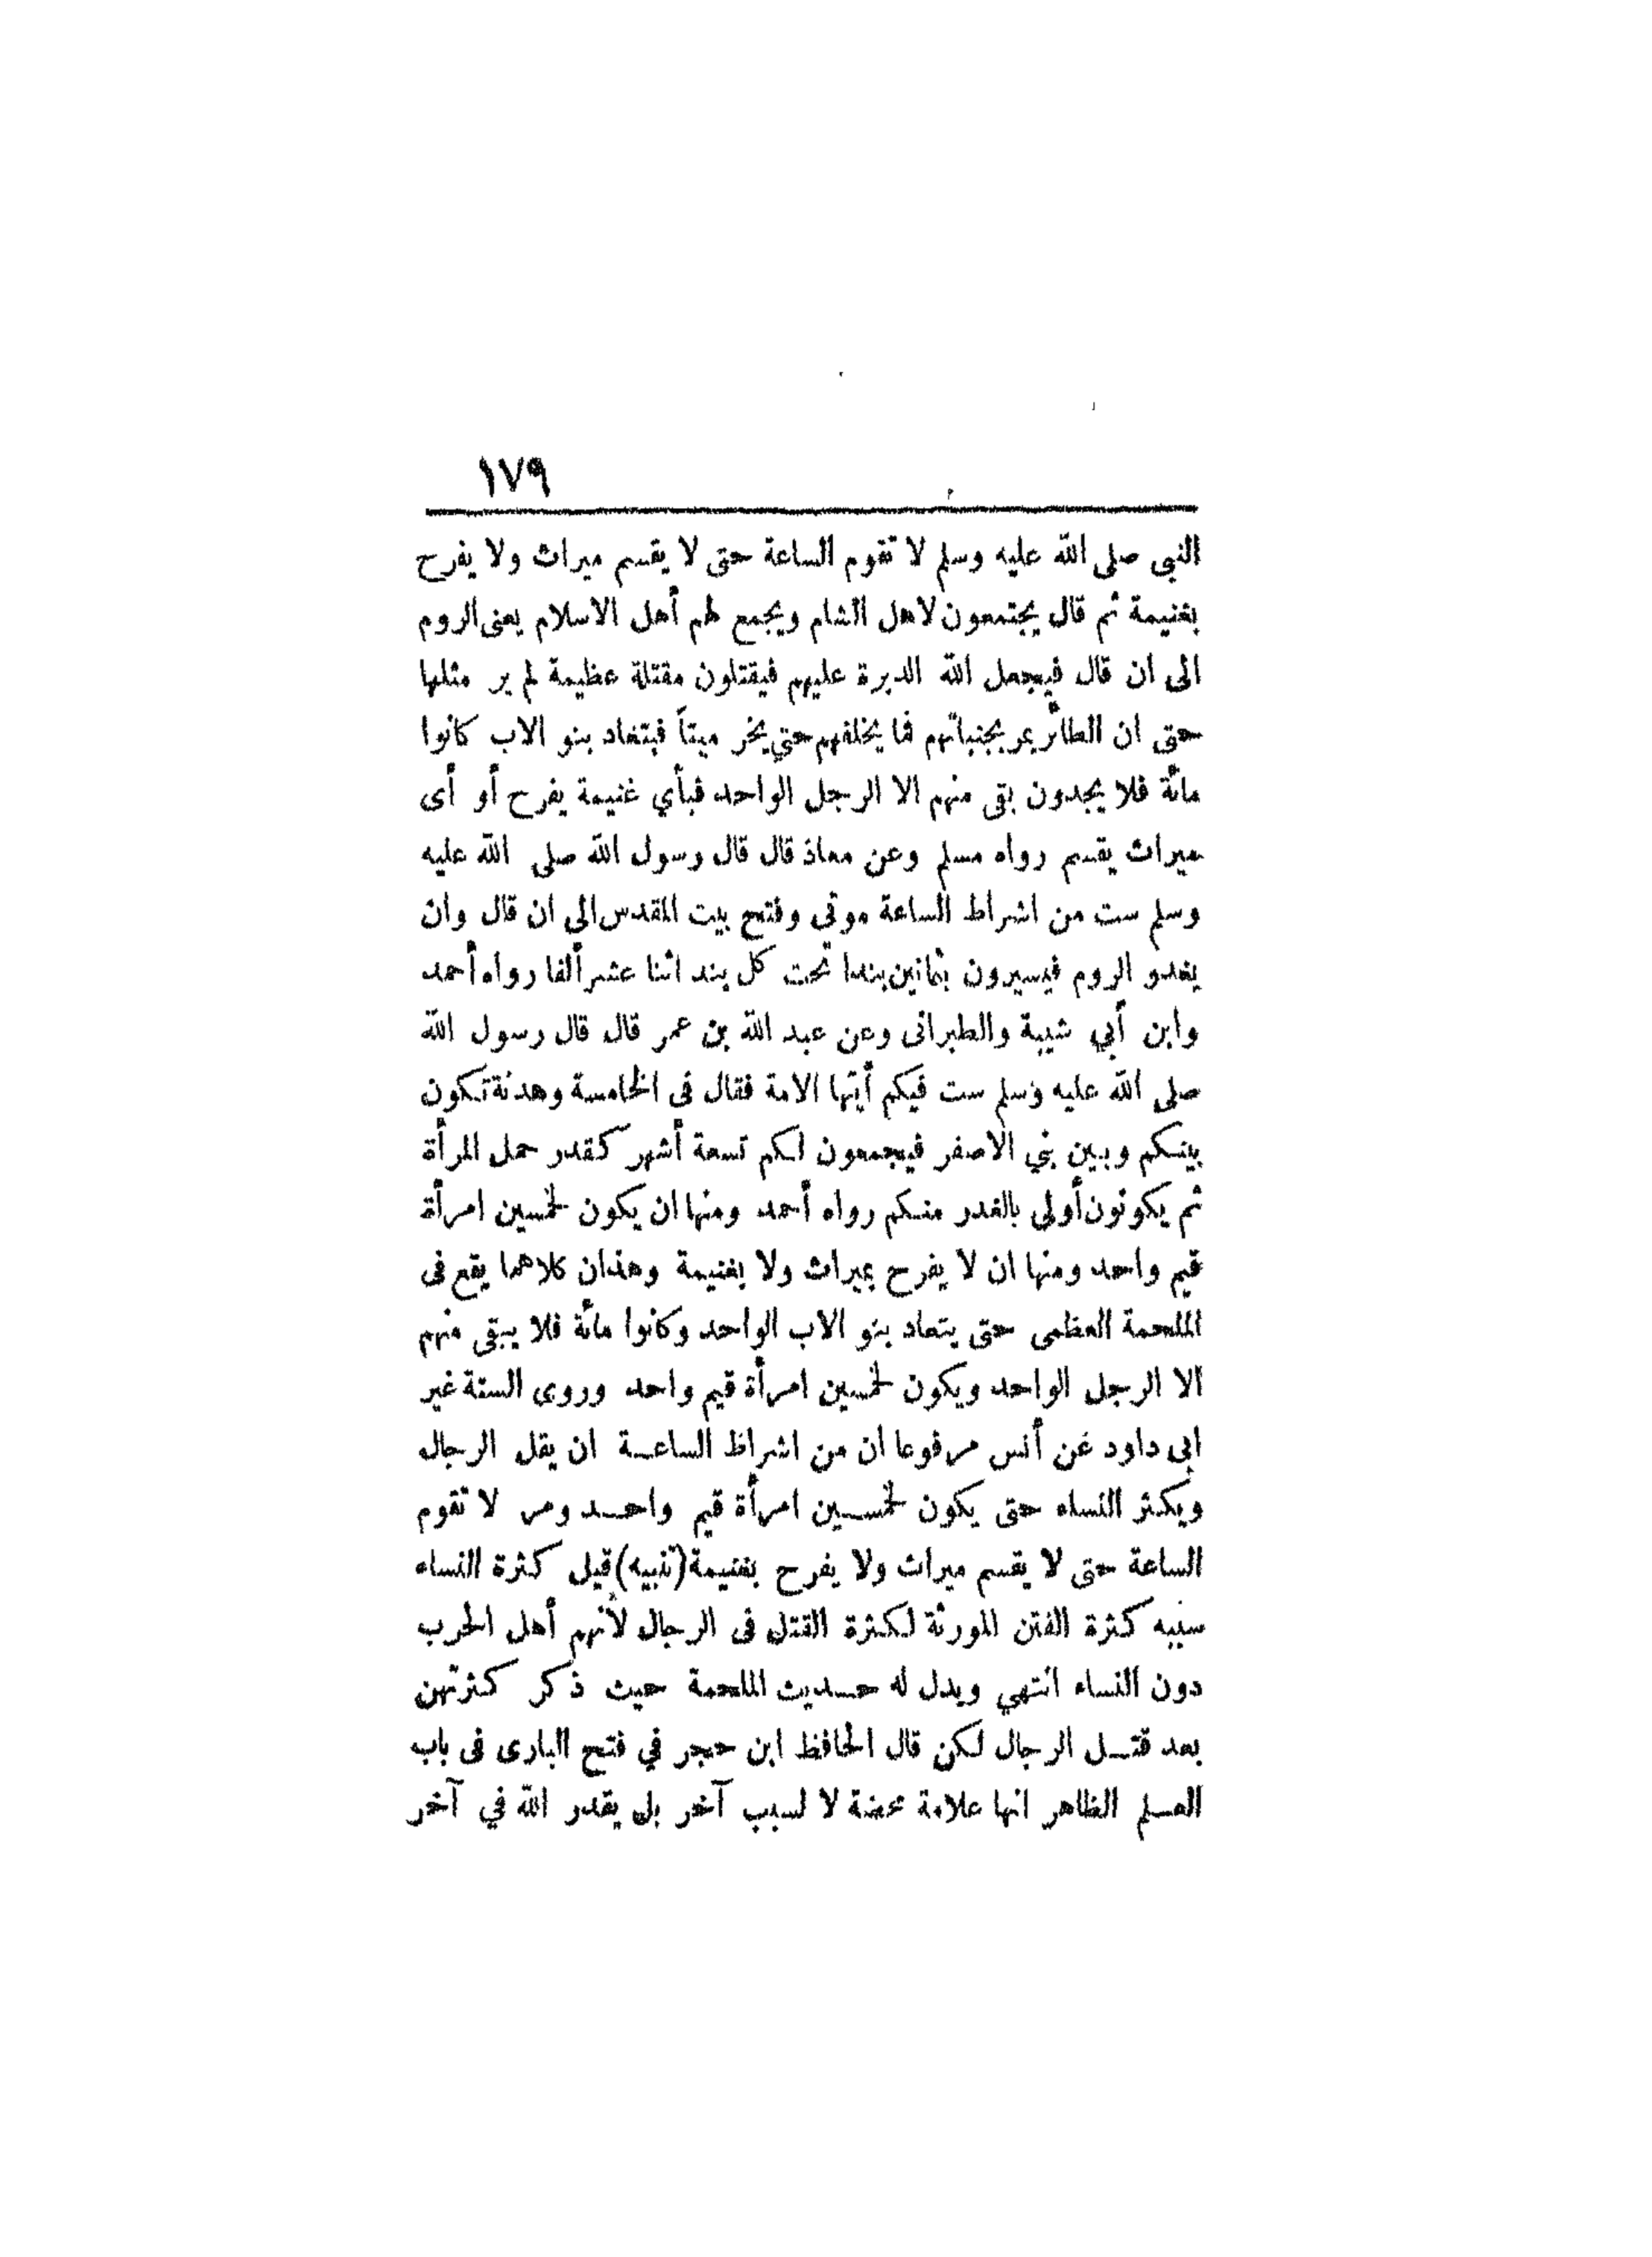 ١٧٩
النبى صلى الله عليه وسلم لا تقوم الساعة حتى لا يقسم ميراث ولا يفرح
بغنيمة ثم قال يجتمعون لاهل الشام ويجمع لهم أهل الاسلام يعنى الروم
الى ان قال فيجعل الله الدبرة عليهم فيقتلون مقتلة عظيمة لم ير مثلها
حتى ان الطائر يمر بجنباتهم فما يخلفهم حتي يخر ميتاً فيتعاد بنو الاب كانوا
مائة فلا يجدون بقى منهم الا الرجل الواحد فبأي غنيمة يفرح أو أى
ميراث يقسم رواه مسلم وعن معاذ قال قال رسول الله صلى الله عليه
وسلم ست من اشراط الساعة موتى وفتح بيت المقدس الى ان قال وان
يغدو الروم فيسيرون بثمانين بندا تحت كل بند اثنا عشر ألفا رواه أحمد
وابن أبي شيبة والطبرانى وعن عبد الله بن عمر قال قال رسول الله
صلى الله عليه وسلم ست فيكم أيتها الامة فقال فى الخامسة وهدنة تكون
بينكم وبين بني الاصفر فيجمعون لكم تسعة أشهر كقدر حمل المرأة
ثم يكونون أولى بالغدر منكم رواه أحمد ومنها ان يكون لخمسين امرأة
قيم واحد ومنها ان لا يفرح بميراث ولا بغنيمة وهذان كلاهما يقع فى
الملحمة العظمى حتى يتعاد بنو الاب الواحد وكانوا مائة فلا يبقى منهم
الا الرجل الواحد ويكون لخمسين امرأة قيم واحد وروى الستة غير
ابى داود عن أنس مرفوعا ان من اشراط الساعة ان يقل الرجال
ويكثر النساء حتى يكون لخمسين امرأة قيم واحد ومر لا تقوم
الساعة حتى لا يقسم ميراث ولا يفرح بغنيمة (تنبيه) قيل كثرة النساء
سببه كثرة الفتن المورثة لكثرة القتل فى الرجال لأنهم أهل الحرب
دون النساء انتهي ويدل له حديث الملحمة حيث ذكر كثرتهن
بعد قتل الرجال لكن قال الحافظ ابن حجر في فتح البارى فى باب
العلم الظاهر انها علامة محضة لا لسبب آخر بل يقدر الله في آخر